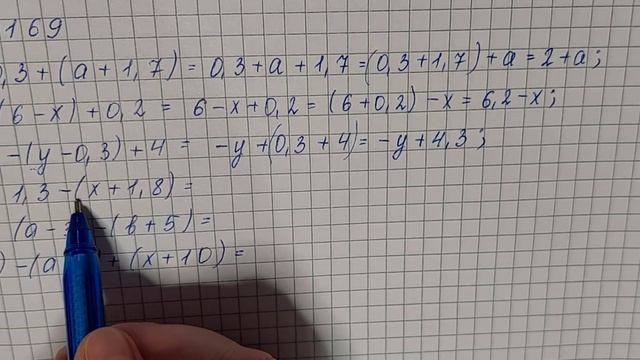 169
0,3 + (a + 1,7) = 0,3 + a + 1,7 = (0,3 + 1,7) + a = 2 + a;
(6 - x) + 0,2 = 6 - x + 0,2 = (6 + 0,2) - x = 6,2 - x;
-(y - 0,3) + 4 = -y + (0,3 + 4) = -y + 4,3;
1,3 - (x + 1,8) =
(a - - (b + 5) =
) -(a + (x + 10) =